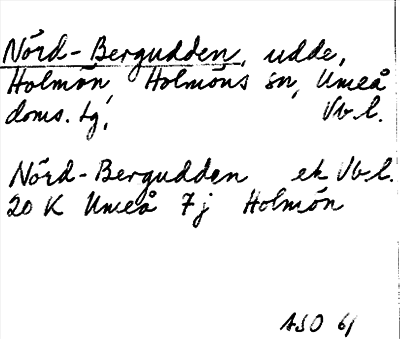 Nörd-Bergudden, udde,
Holmön Holmöns sn, Umeå
doms. tg, Vb.l.
Nörd-Bergudden ek Vb.l.
20 K Umeå 7j Holmön
ASO 61